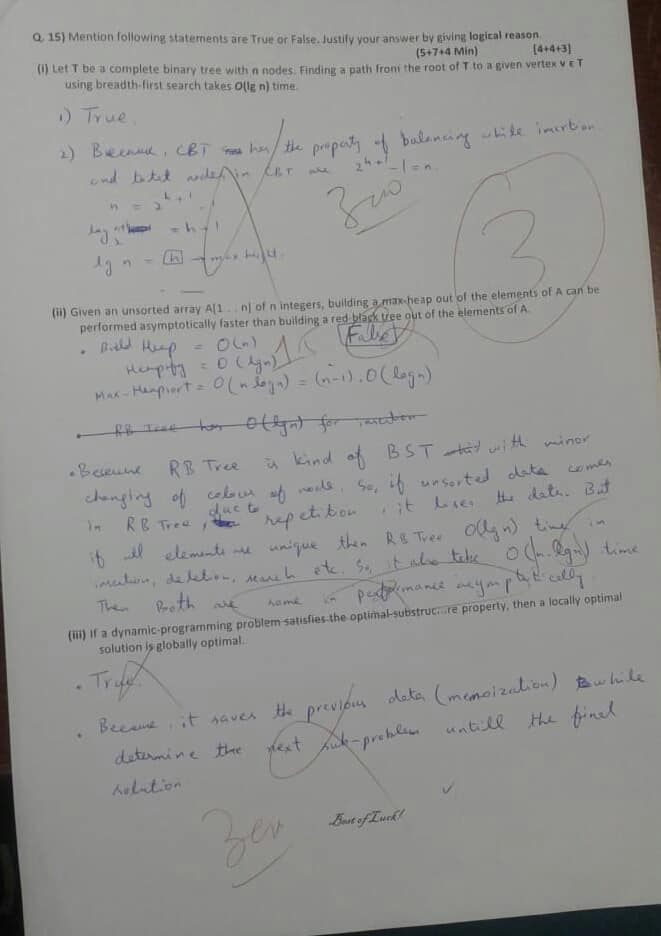 Q. 15) Mention following statements are True or False. Justify your answer by giving logical reason.
(5+7+4 Min) [4+4+3]
(i) Let T be a complete binary tree with n nodes. Finding a path from the root of T to a given vertex v ε T
using breadth-first search takes O(lg n) time.
1) True.
2) Because, CBT has the property of balancing while insertion
and total nodes in CBT are 2^(h+1) - 1 = n.
n = 2^(h+1) - 1
= h+1
lg n = h → max height.
Zero
3
(ii) Given an unsorted array A[1 . . n] of n integers, building a max-heap out of the elements of A can be
performed asymptotically faster than building a red-black tree out of the elements of A.
False
• Build Heap = O(n)
Heapify = O(lgn)
Max-Heapsort = O(n logn) = (n-1).O(logn)
• RB Tree has O(lgn) for insertion
• Because RB Tree is kind of BST with minor
changing of colour of node. So, if unsorted data comes
in RB Tree, due to repetition, it loses the data. But
if all elements are unique then RB Tree O(lgn) time in
insertion, deletion, search etc. So, it also take O(n.lgn) time
Then Both are same in performance asymptotically.
(iii) If a dynamic-programming problem satisfies the optimal-substruc...re property, then a locally optimal
solution is globally optimal.
• True.
• Because, it saves the previous data (memoization) while
determine the next sub-problem untill the final
solution
Best of Luck!